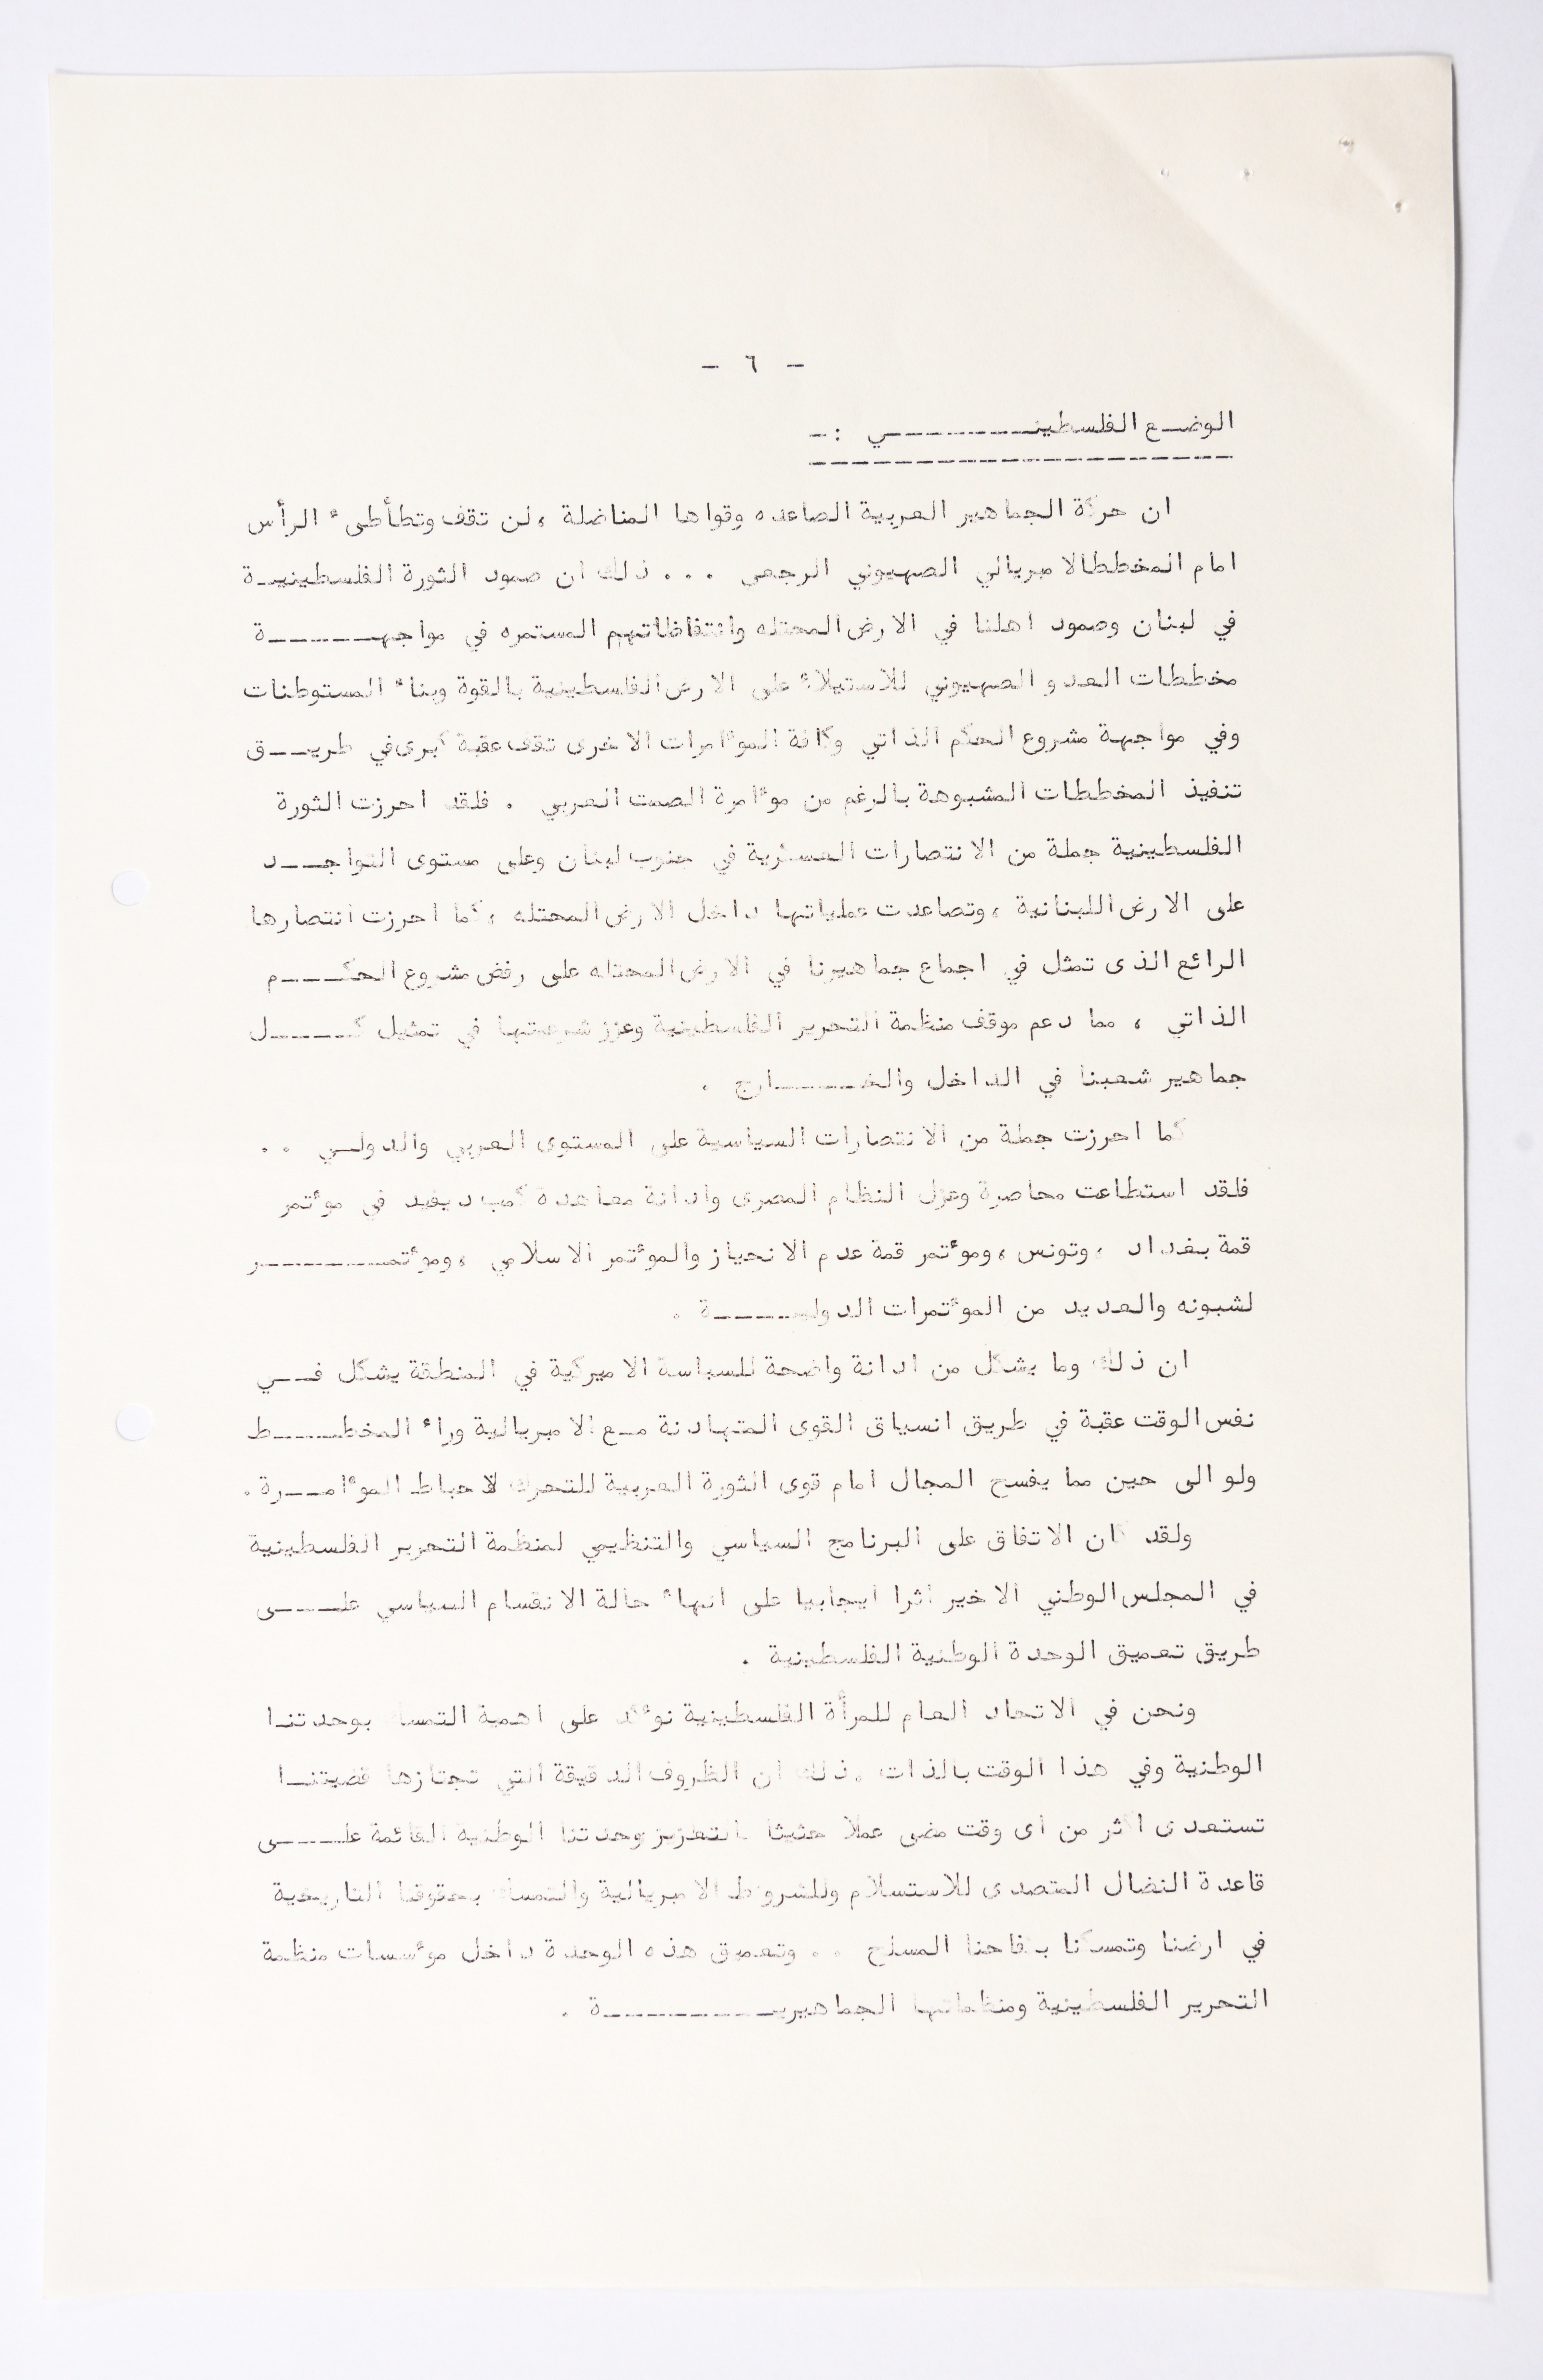 - ٦ -
الوضع الفلسطيني :-
ان حركة الجماهير العربية الصاعده وقواها المناضلة ، لن تقف وتطأطىء الرأس
امام المخططالامبريالي الصهيوني الرجعي . . . ذلك ان صمود الثورة الفلسطينية
في لبنان وصمود اهلنا في الارض المحتله وانتفاظاتهم المستمره في مواجهة
مخططات العدو الصهيوني للاستيلاء على الارض الفلسطينية بالقوة وبناء المستوطنات
وفي مواجهة مشروع الحكم الذاتي وكافة الموءامرات الاخرى تقف عقبة كبرى في طريق
تنفيذ المخططات المشبوهة بالرغم من موءامرة الصمت العربي . فلقد احرزت الثورة
الفلسطينية جملة من الانتصارات العسكرية في جنوب لبنان وعلى مستوى التواجد
على الارض اللبنانية ، وتصاعدت عملياتها داخل الارض المحتله ، كما احرزت انتصارها
الرائع الذى تمثل في اجماع جماهيرنا في الارض المحتله على رفض مشروع الحكم
الذاتي ، مما دعم موقف منظمة التحرير الفلسطينية وعزز شرعيتها في تمثيل كل
جماهير شعبنا في الداخل والخارج .
كما احرزت جملة من الانتصارات السياسية على المستوى العربي والدولي . .
فلقد استطاعت محاصرة وعزل النظام المصرى وادانة معاهدة كمب ديفيد في موءتمر
قمة بغداد ، وتونس ، وموءتمر قمة عدم الانحياز والموءتمر الاسلامي ، وموءتمر
لشبونه والعديد من الموءتمرات الدولية .
ان ذلك وما يشكل من ادانة واضحة للسياسة الاميركية في المنطقة يشكل في
نفس الوقت عقبة في طريق انسياق القوى المتهادنة مع الامبريالية وراء المخطط
ولو الى حين مما يفسح المجال امام قوى الثورة العربية للتحرك لاحباط الموءامرة .
ولقد كان الاتفاق على البرنامج السياسي والتنظيمي لمنظمة التحرير الفلسطينية
في المجلس الوطني الاخير اثرا ايجابيا على انهاء حالة الانقسام السياسي على
طريق تعميق الوحدة الوطنية الفلسطينية .
ونحن في الاتحاد العام للمرأة الفلسطينية نوءكد على اهمية التمسك بوحدتنا
الوطنية وفي هذا الوقت بالذات ، ذلك ان الظروف الدقيقة التي تجتازها قضيتنا
تستعدى اكثر من اى وقت مضى عملا حثيثا لتعزيز وحدتنا الوطنية القائمة على
قاعدة النضال المتصدى للاستسلام وللشروط الامبريالية والتمسك بحقوقنا التاريخية
في ارضنا وتمسكنا بكفاحنا المسلح . . وتعميق هذه الوحدة داخل موءسسات منظمة
التحرير الفلسطينية ومنظماتها الجماهيرية .